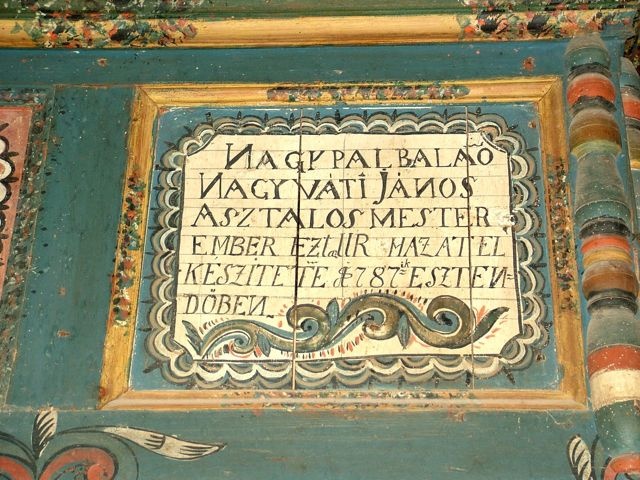 NAGY PAL BALAÕ
NAGYVÁTI JÁNOS
ASZTALOS MESTER
EMBER EZt aUR HAZAT EL
KÉSZITETE 1787ik ESZTEN-
DÖBEN